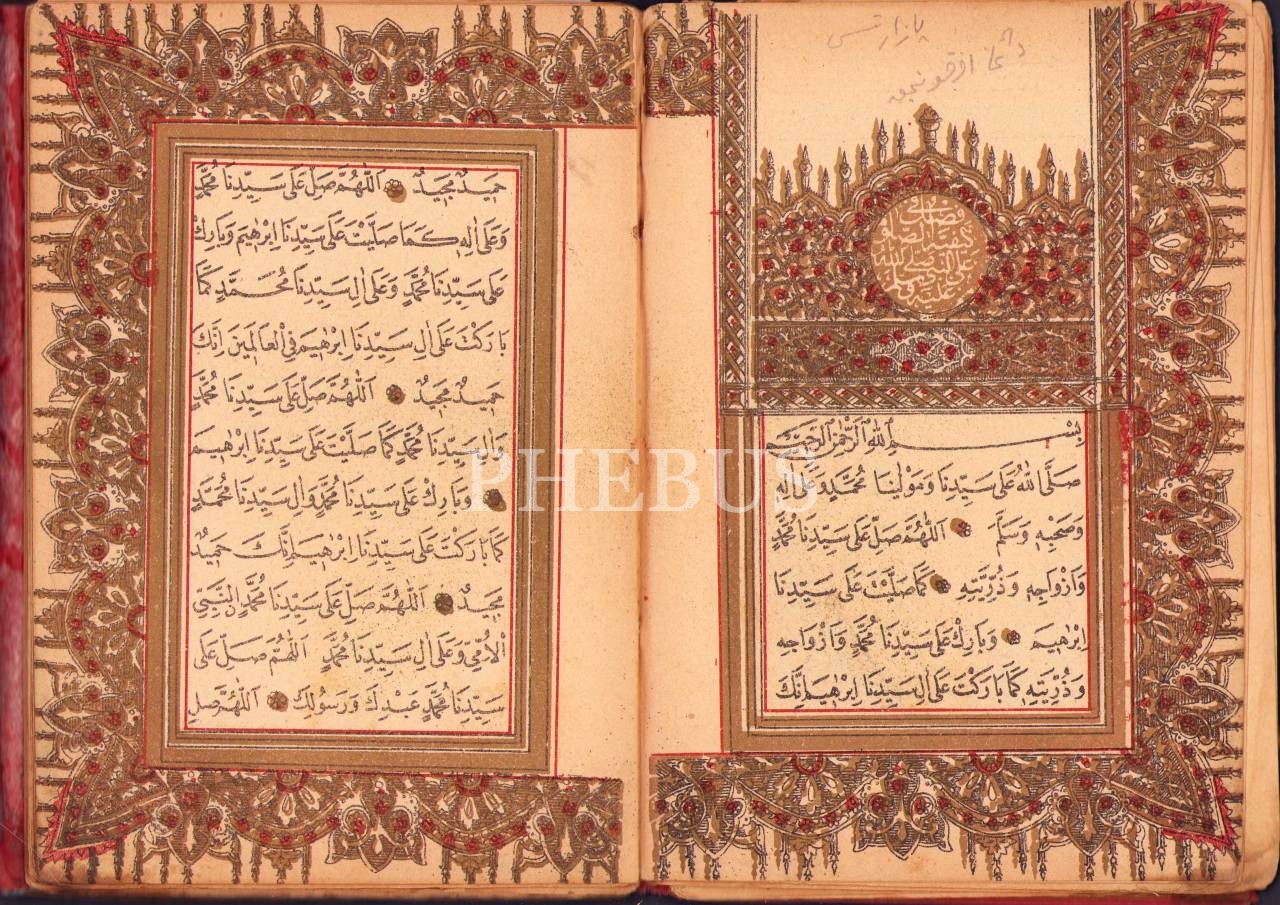 پازار ايرتسى
فصل فى
كيفية الصلوة
على النبى صلى الله
عليه وسلم
بِسْمِ اللهِ الرَّحْمٰنِ الرَّحِيمِ
صَلَّى اللهُ عَلٰى سَيِّدِنَا وَمَوْلٰينَا مُحَمَّدٍ وَعَلٰى اٰلِهٖ
وَصَحْبِهٖ وَسَلَّمَ اَللّٰهُمَّ صَلِّ عَلٰى سَيِّدِنَا مُحَمَّدٍ
وَاَزْوَاجِهٖ وَذُرِّيَّتِهٖ كَمَا صَلَّيْتَ عَلٰى سَيِّدِنَا
اِبْرٰهِيمَ وَبَارِكْ عَلٰى سَيِّدِنَا مُحَمَّدٍ وَاَزْوَاجِهٖ
وَذُرِّيَّتِهٖ كَمَا بَارَكْتَ عَلٰى اٰلِ سَيِّدِنَا اِبْرٰهِيمَ اِنَّكَ
حَمِيدٌ مَجِيدٌ اَللّٰهُمَّ صَلِّ عَلٰى سَيِّدِنَا مُحَمَّدٍ
وَعَلٰى اٰلِهٖ كَمَا صَلَّيْتَ عَلٰى سَيِّدِنَا اِبْرٰهِيمَ وَبَارِكْ
عَلٰى سَيِّدِنَا مُحَمَّدٍ وَعَلٰى اٰلِ سَيِّدِنَا مُحَمَّدٍ كَمَا
بَارَكْتَ عَلٰى اٰلِ سَيِّدِنَا اِبْرٰهِيمَ فِى الْعَالَمِينَ اِنَّكَ
حَمِيدٌ مَجِيدٌ اَللّٰهُمَّ صَلِّ عَلٰى سَيِّدِنَا مُحَمَّدٍ
وَاٰلِ سَيِّدِنَا مُحَمَّدٍ كَمَا صَلَّيْتَ عَلٰى سَيِّدِنَا اِبْرٰهِيمَ
وَبَارِكْ عَلٰى سَيِّدِنَا مُحَمَّدٍ وَاٰلِ سَيِّدِنَا مُحَمَّدٍ
كَمَا بَارَكْتَ عَلٰى سَيِّدِنَا اِبْرٰهِيمَ اِنَّكَ حَمِيدٌ
مَجِيدٌ اَللّٰهُمَّ صَلِّ عَلٰى سَيِّدِنَا مُحَمَّدٍ النَّبِىِّ
الْاُمِّىِّ وَعَلٰى اٰلِ سَيِّدِنَا مُحَمَّدٍ اَللّٰهُمَّ صَلِّ عَلٰى
سَيِّدِنَا مُحَمَّدٍ عَبْدِكَ وَرَسُولِكَ اَللّٰهُمَّ صَلِّ
PHEBUS